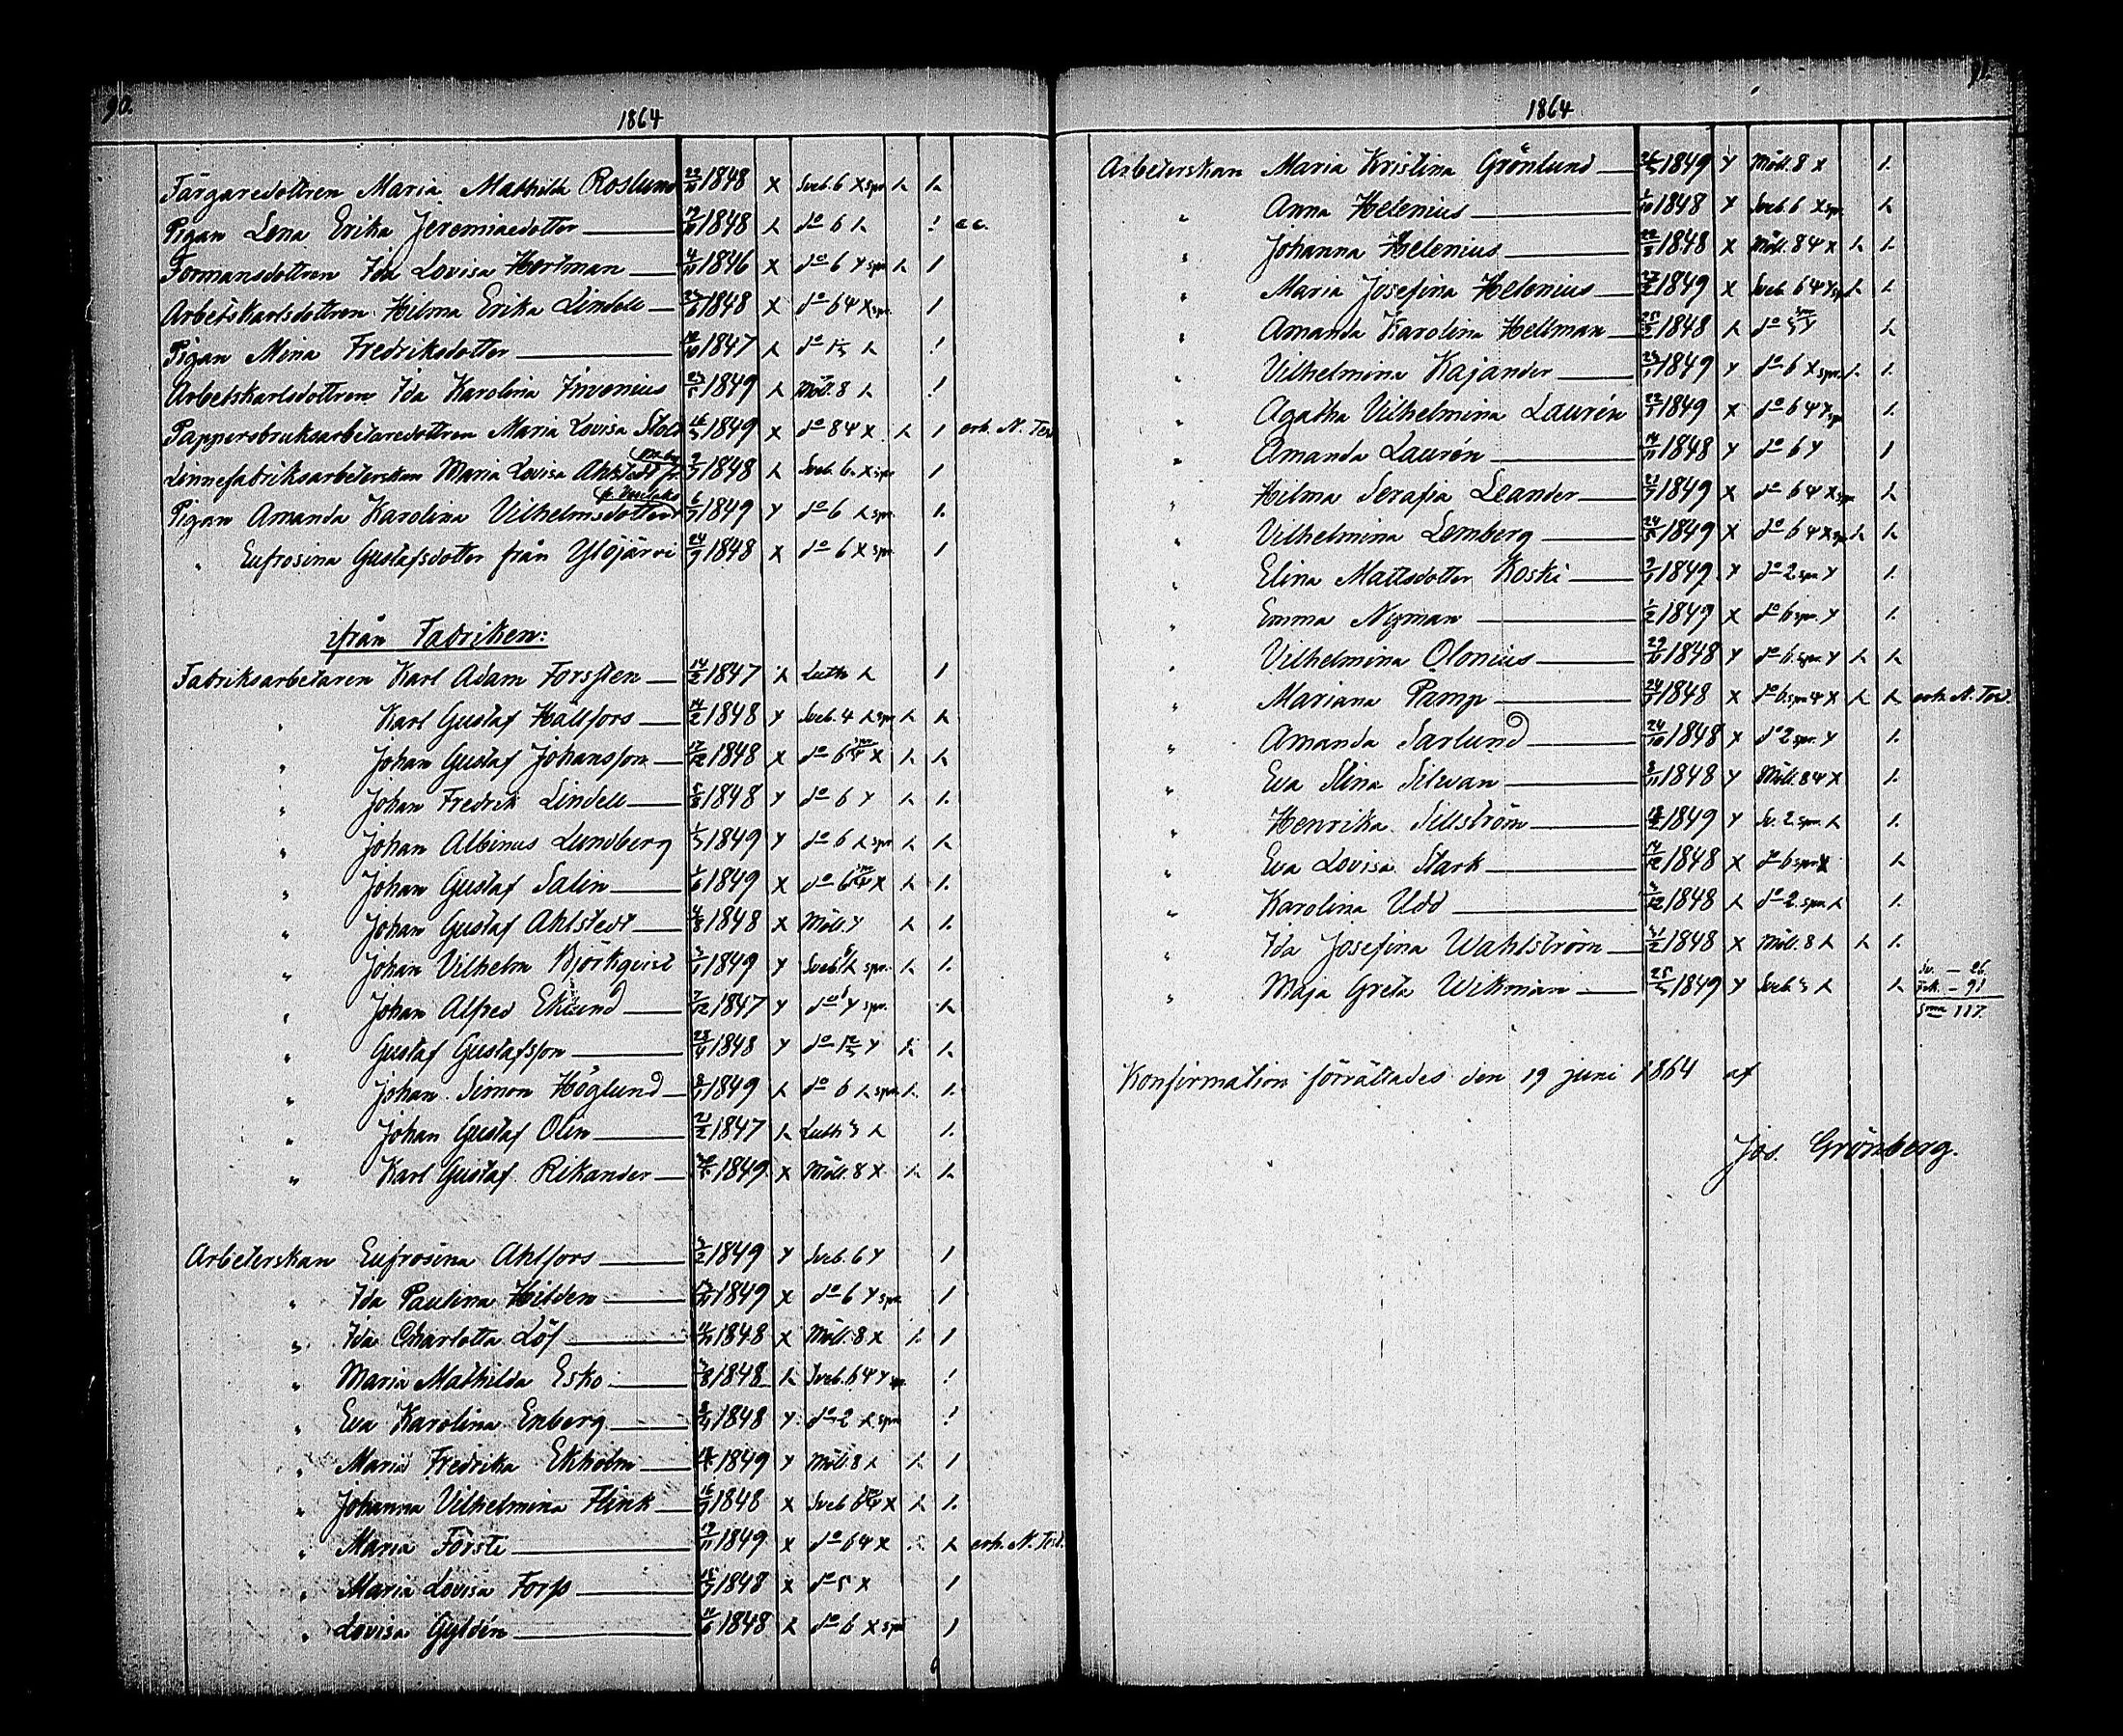 90.
1864
Färgaredottren Maria Mathilda Roslund 1848 x Sveb. 6 x spr
Pigan Lena Erika Jeremiaedotter 1848 d:o 6
Formansdottren Ida Lovisa Hortman 4/10 1846 x d:o 6 Y spr
Arbetskarlsdottren Hilma Erika Lindell 1848 x d:o 6 4 x spr.
Pigan Mina Fredriksdotter 1847 d:o
Arbetskarlsdottren Ida Karolina Invenius 1849 Möll. 8
Pappersbruksarbetaredottren Maria Lovisa 1849 x d:o 8 4 x erh. N. Test
Linnefabriksarbeterskan Maria Lovisa Ahlstedt 1848 Sveb. 6 x spr
Pigan Amanda Karolina Vilhelmsdotter 1849 Y d:o 6 spr.
" Eufrosina Gustafsdotter från Ylöjärvi 24/9 1848 x d:o 6 x spr
ifrån Fabriken:
Fabriksarbetaren Karl Adam Forssten 14/2 1847 Luth
" Karl Gustaf Hallfors 14/2 1848 Y Sveb. 4 spr
" Johan Gustaf Johansson 17/12 1848 x d:o 6 x
" Johan Fredrik Lindell 1848 Y d:o 6 Y
" Johan Albinus Lundberg 1849 Y d:o 6 spr
" Johan Gustaf Salin 1849 x d:o 6 x
" Johan Gustaf Ahlstedt 4/8 1848 x Möll. Y
" Johan Vilhelm Björkqvist 1849 Y Sveb. spr.
" Johan Alfred Eklund 7/12 1847 Y d:o Y spr.
" Gustaf Gustafsson 1848 Y d:o Y
" Johan Simon Höglund 1849 d:o 6 spr
" Johan Gustaf Olin 21/2 1847 Luth
" Karl Gustaf Rikander 1849 x Möll. 8 x
Arbeterskan Eufrosina Ahlfors 1849 Y Sveb. 6 Y
" Ida Paulina Hilden 1849 x d:o 6 Y spr
" Ida Charlotta Löf 1848 x Möll. 8 x
" Maria Mathilda Esko 1848 Sveb. 6 4 Y
" Eva Karolina Enberg 1848 Y d:o 2 spr
" Maria Fredrika Ekholm 1849 Y Möll. 8
" Johanna Vilhelmina Flink 1848 x Sveb 6 x
" Maria Försti 1849 x d:o 6 4 x erh. N. Test.
" Maria Lovisa Forss 1848 x d:o 5 x
" Lovisa Gyldén 1848 d:o 6 x spr
1864
Arbeterskan Maria Kristina Grönlund 1849 Y Möll. 8 x
" Anna Helenius 1/10 1848 Y Sveb. 6 x spr.
" Johanna Helenius 1848 x Möll. 8 4 x
" Maria Josefina Helenius 1849 x Sveb. 6 4 Y spr
" Amanda Karolina Hellman 1848 d:o
" Vilhelmina Kajander 1849 Y d:o 6 x spr.
" Agatha Vilhelmina Laurén 1849 x d:o 6 4 Y spr
" Amanda Laurén 1848 Y d:o 6 Y
" Hilma Serafia Leander 1849 x d:o 6 4 x spr
" Vilhelmina Lemberg 1849 x d:o 6 4 x spr
" Elina Mattsdotter Koski 1849 Y d:o 2 spr Y
" Emma Nyman 1/2 1849 x d:o 6 spr. Y
" Vilhelmina Olonius 1848 Y d:o 6 spr Y
" Mariana Pamp 1848 x d:o 6 spr 4 x erh. N. Test.
" Amanda Sarlund 24/10 1848 Y d:o 2 spr. Y
" Eva Stina Silwan 1848 Y Möll. 8 4 x
" Henrika Sillström 1849 Y Sv. 2 spr.
" Eva Lovisa Stark 14/12 1848 x d:o 6 spr x
" Karolina Udd 1848 d:o 2 spr
" Ida Josefina Wahlström 1848 x Möll. 8
" Maja Greta Wikman 1849 Y Sveb.
Sv. — 26
Fsk. — 91
S:ma 117.
Konfirmation förrättades den 19 juni 1864 af
Jos. Grönberg.